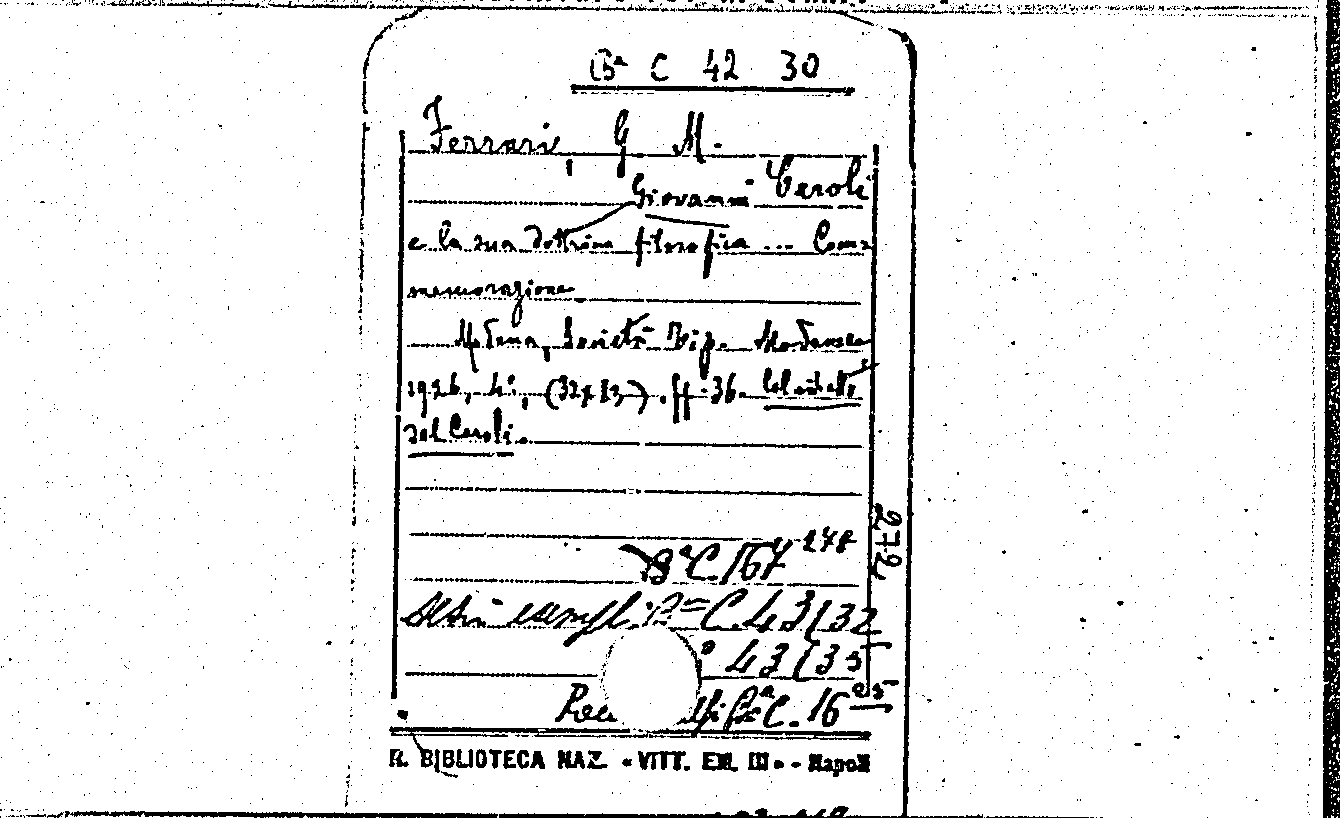 Bª C 42 30
Ferrari, G M.
Giovanni Ceroli
e la sua dottrina filosofica ... Com=
memorazione
Modena, Società Tip. Modenese
1926, 4°, ff. 36.
del Ceroli.
272
Bª C. 167 278
Altri esempl. Bª C. 43(32
43(35
Bª C. 16
R. BIBLIOTECA NAZ. «VITT. EM. III» - Napoli